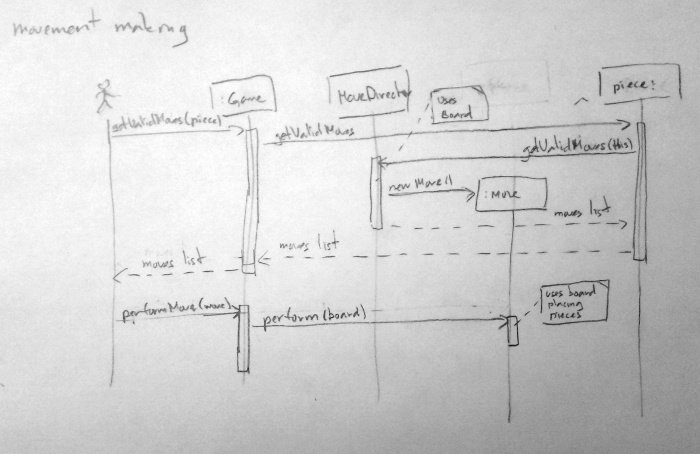 movement making
:Game
MoveDirector
uses
Board
piece:
getValidMoves(piece)
getValidMoves
getValidMoves(this)
new Move()
:Move
moves list
moves list
moves list
performMove(move)
perform(board)
uses board
placing
pieces